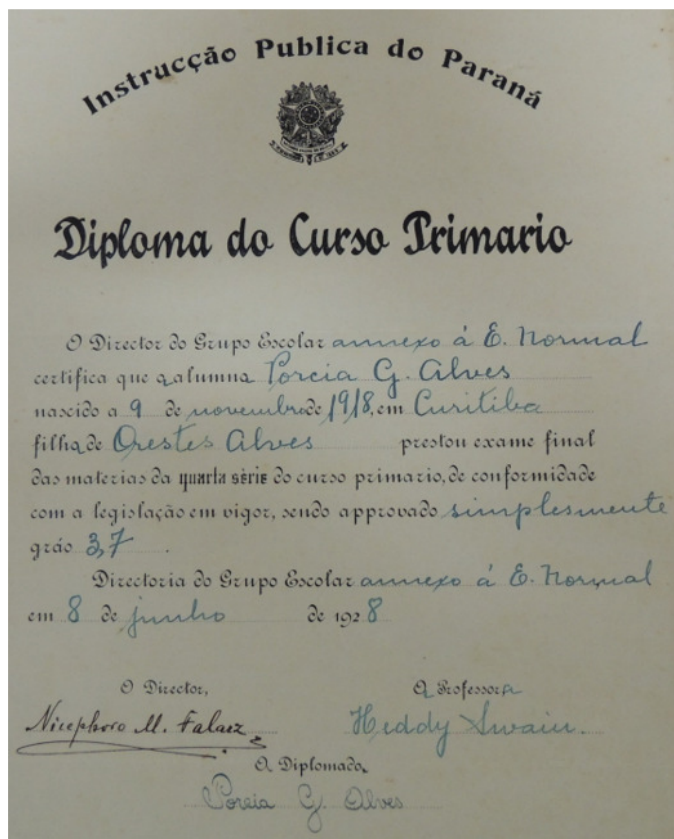 Instrucção Publica do Paraná
Diploma do Curso Primario
O Director do Grupo Escolar annexo á E. Normal
certifica que a alumna Porcia G. Alves
nascido a 9 de novembro de 1918, em Curitiba
filha de Orestes Alves prestou exame final
das materias da quarta série do curso primario, de conformidade
com a legislação em vigor, sendo approvado simplesmente
gráo 3,7.
Directoria do Grupo Escolar annexo á E. Normal
em 8 de junho de 1928
O Director, A Professora
Nicephoro M. Falarz Heddy Swain.
A Diplomada
Porcia G. Alves